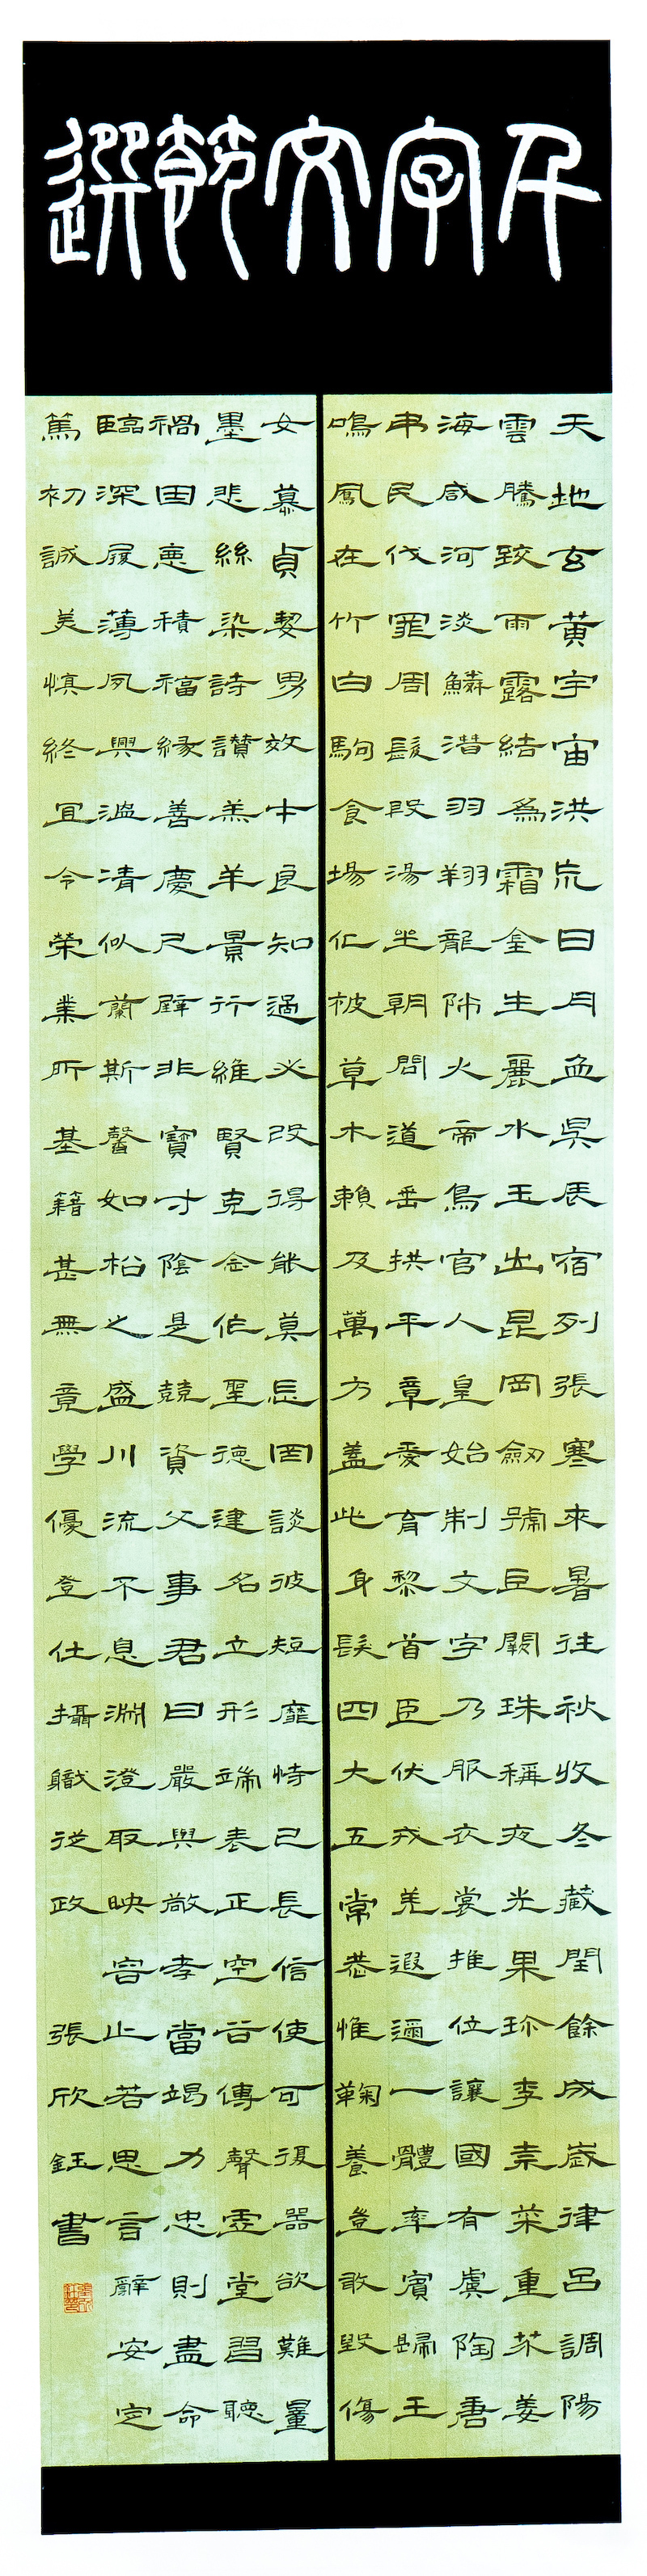 千字文節選
天地玄黃宇宙洪荒日月盈昃辰宿列張寒來暑往秋收冬藏閏餘成歲律呂調陽
雲騰致雨露結爲霜金生麗水玉出昆岡劒號巨闕珠稱夜光果珍李柰菜重芥姜
海咸河淡鱗潛羽翔龍師火帝鳥官人皇始制文字乃服衣裳推位讓國有虞陶唐
弔民伐罪周髮殷湯坐朝問道垂拱平章愛育黎首臣伏戎羌遐邇一體率賓歸王
鳴鳳在竹白駒食場化被草木賴及萬方蓋此身髮四大五常恭惟鞠養豈敢毀傷
女慕貞契男效才良知過必改得能莫忘罔談彼短靡恃己長信使可復器欲難量
墨悲絲染詩讃羔羊景行維賢克念作聖德建名立形端表正空谷傳聲虛堂習聽
禍因惡積福緣善慶尺璧非寶寸陰是競資父事君曰嚴與敬孝當竭力忠則盡命
臨深履薄夙興溫凊似蘭斯馨如松之盛川流不息淵澄取映容止若思言辭安定
篤初誠美慎終宜令榮業所基籍甚無竟學優登仕攝職從政 張欣鈺書